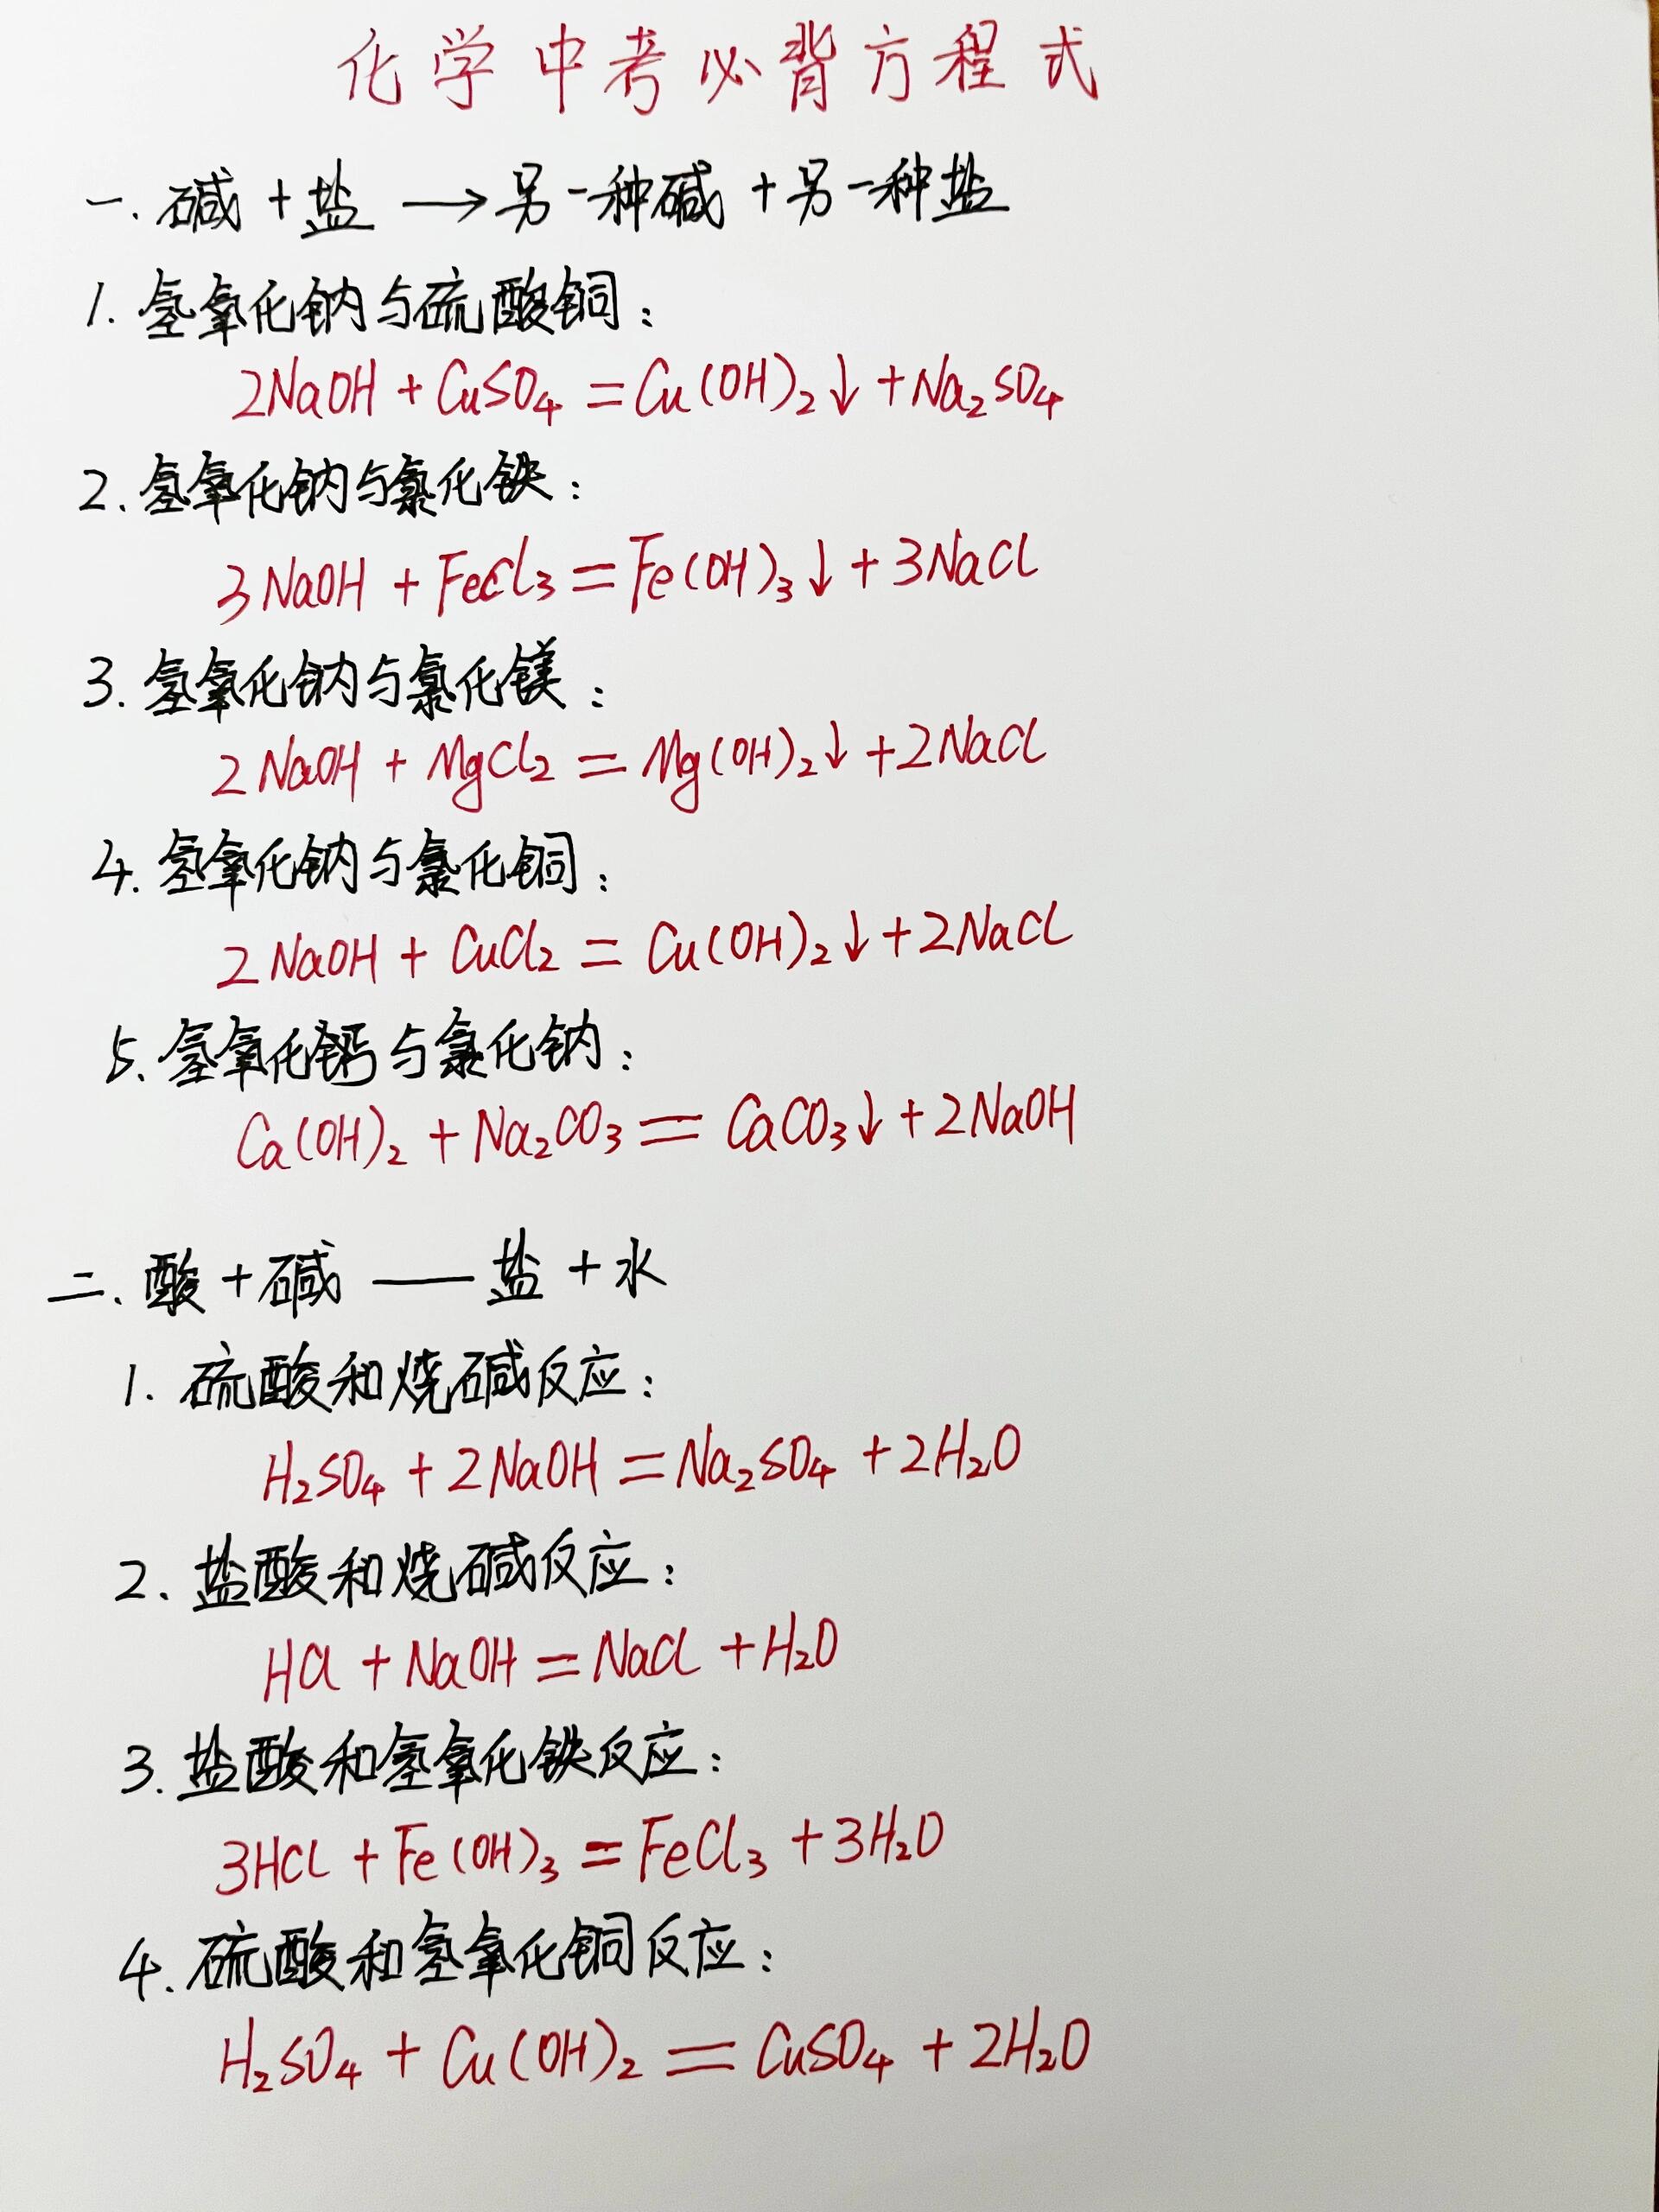 化学中考必背方程式
一. 碱 + 盐 → 另一种碱 + 另一种盐
1. 氢氧化钠与硫酸铜：
2NaOH + CuSO₄ = Cu(OH)₂↓ + Na₂SO₄
2. 氢氧化钠与氯化铁：
3NaOH + FeCl₃ = Fe(OH)₃↓ + 3NaCl
3. 氢氧化钠与氯化镁：
2NaOH + MgCl₂ = Mg(OH)₂↓ + 2NaCl
4. 氢氧化钠与氯化铜：
2NaOH + CuCl₂ = Cu(OH)₂↓ + 2NaCl
5. 氢氧化钙与氯化钠：
Ca(OH)₂ + Na₂CO₃ = CaCO₃↓ + 2NaOH
二、酸 + 碱 — 盐 + 水
1. 硫酸和烧碱反应：
H₂SO₄ + 2NaOH = Na₂SO₄ + 2H₂O
2、盐酸和烧碱反应：
HCl + NaOH = NaCl + H₂O
3. 盐酸和氢氧化铁反应：
3HCl + Fe(OH)₃ = FeCl₃ + 3H₂O
4. 硫酸和氢氧化铜反应：
H₂SO₄ + Cu(OH)₂ = CuSO₄ + 2H₂O